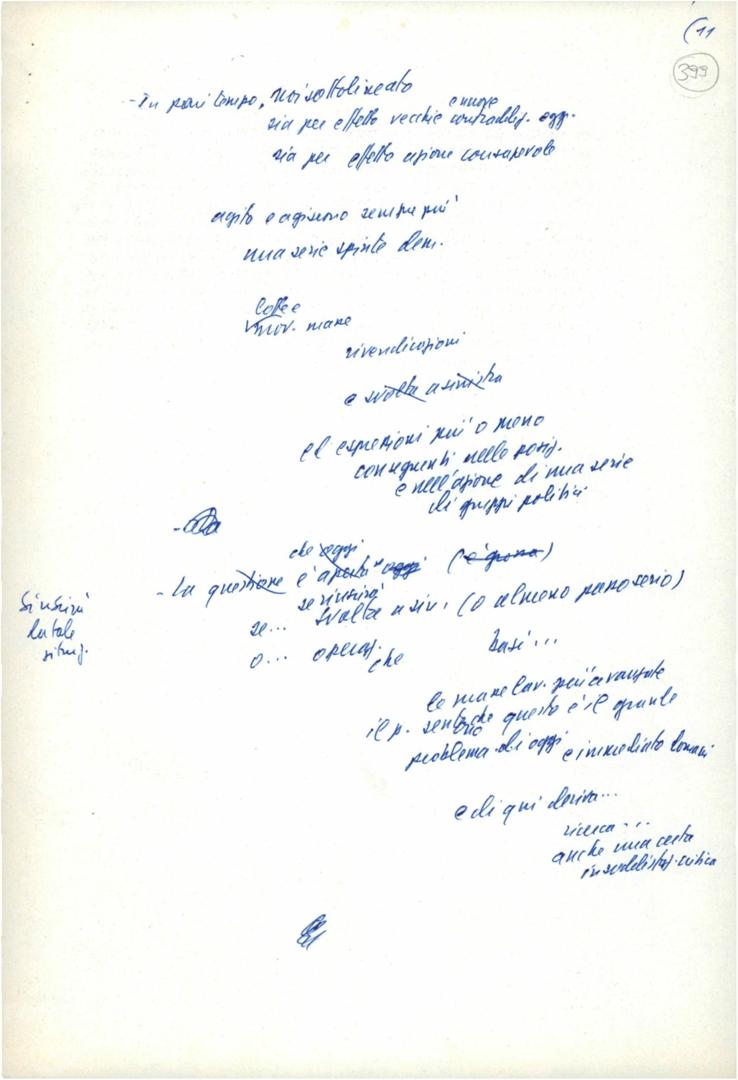 (11
399
- In pari tempo, noi sottolineato
e nuove
sia per effetto vecchie contraddiz. oggi.
sia per effetto azione consapevole
agito e agiscono sempre più
una serie spinte dem.
lotte e
mov. masse
rivendicazioni
e svolta a sinistra
ed espressioni più o meno
conseguenti nelle posiz.
e nell'azione di una serie
di gruppi politici
che oggi
- La questione è aperta oggi
se riuscirà
se... svolta a sin. (o almeno passo serio)
o... operaz. Basi...
che
le masse lav. più avanzate
il p. sente che questo è il grande
problema di oggi e immediato domani
e di qui deriva...
ricerca...
anche una certa
insoddisfaz. critica